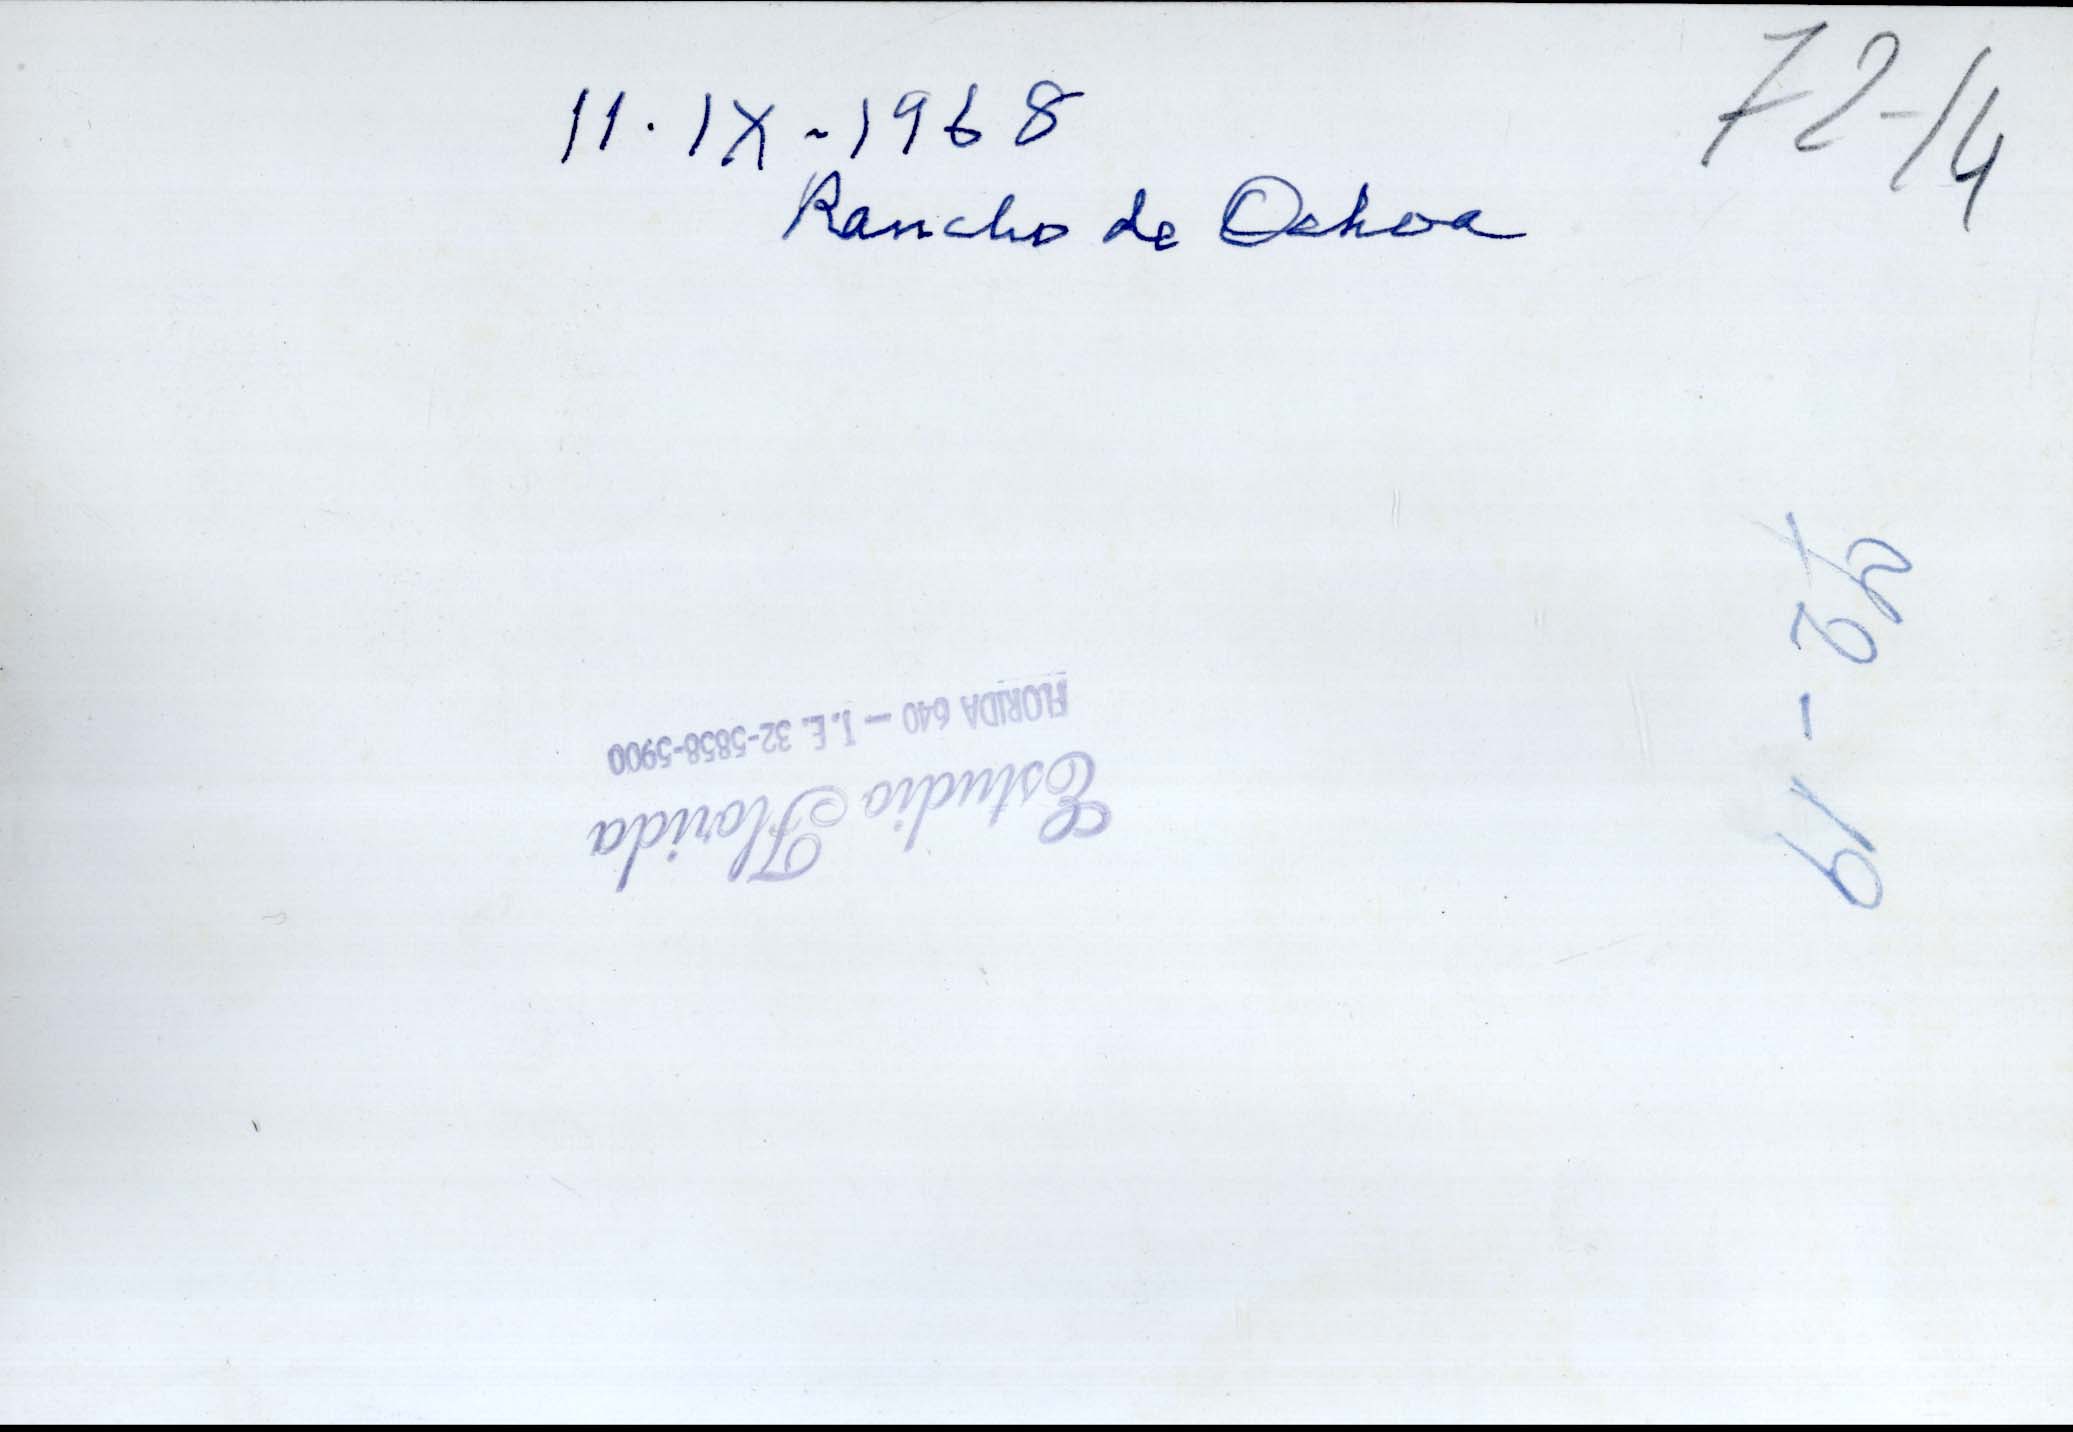 72-14
11. IX-1968
Rancho de Ochoa
72-19
Estudio Florida
FLORIDA 640 — T.E. 32-5858-5900